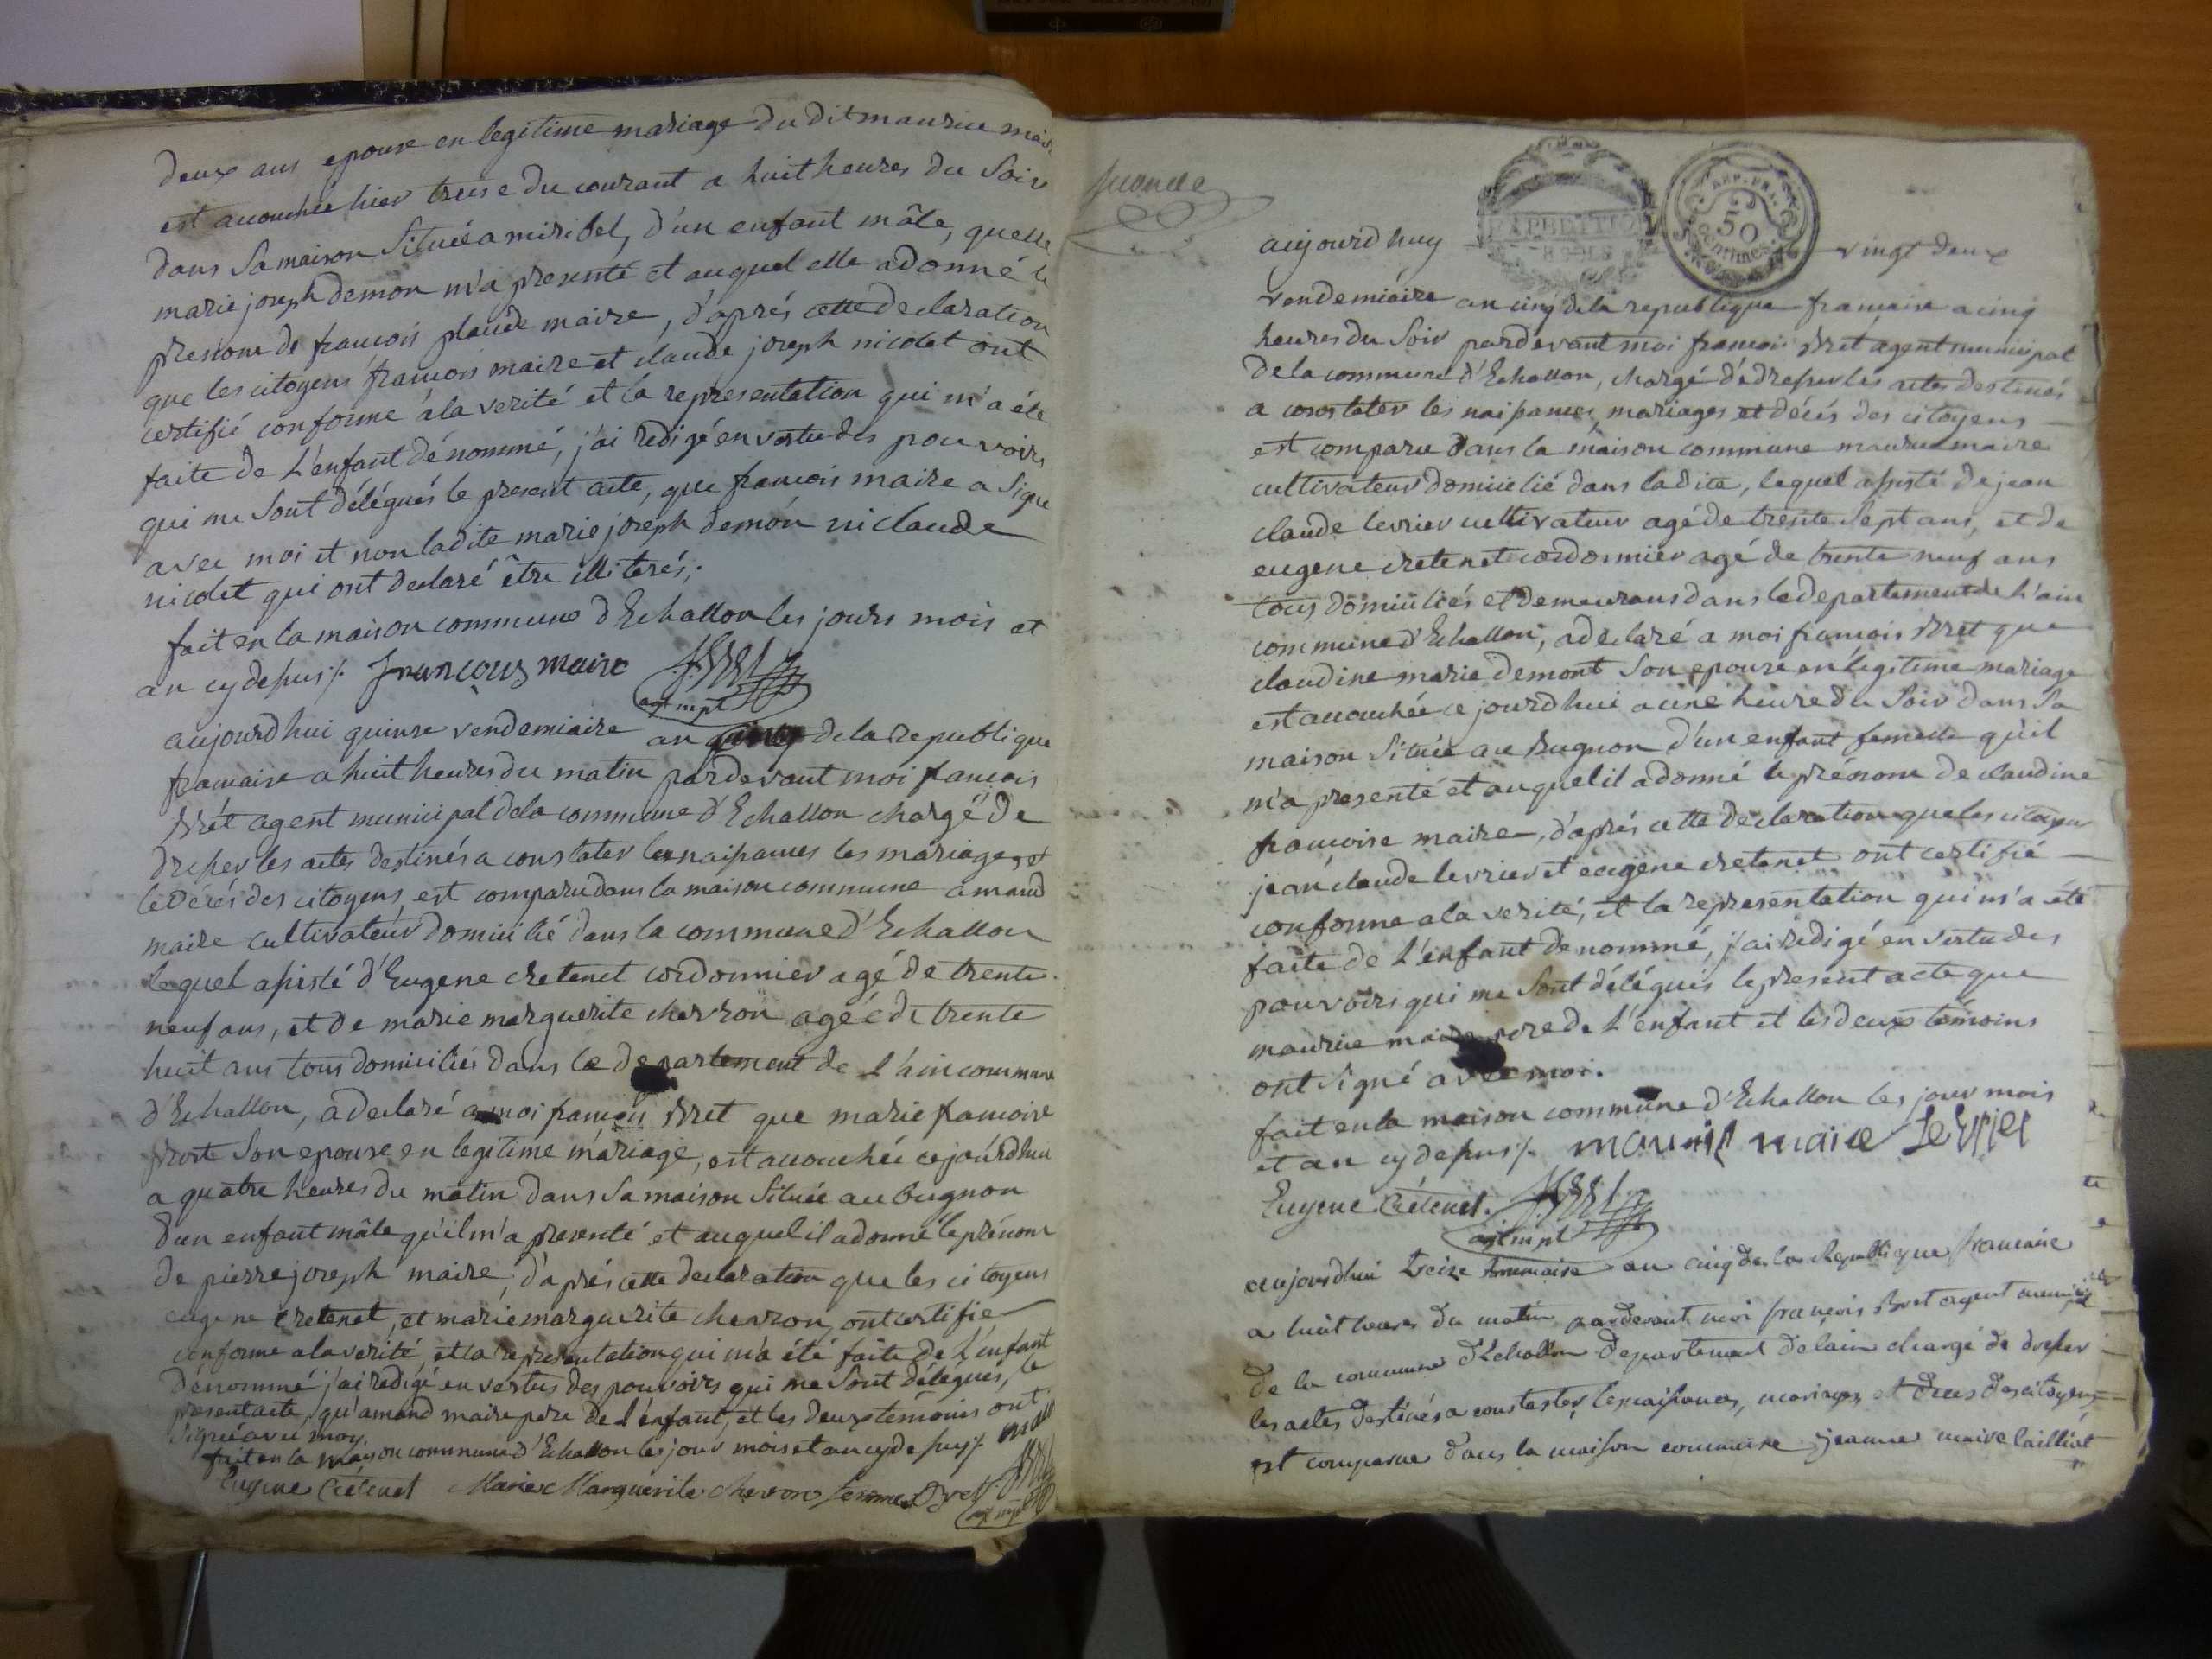 deux ans epouse en legitime mariage du dit maurice maire
est acouchée hier treise du courant a huit heures du Soir
dans Sa maison Située a miribel, d'un enfant mâle, quelle
marie joseph demon m'a presenté et auquel elle a donné le
prenom de francois plaude maire, d'aprés cette declaration
que les citoyens francois maire et claude joseph nicolet ont
certifié conforme à la verité et la representation qui m'a éte
faite de L'enfant dénommé, j'ai redigé en vertu des pouvoirs
qui me Sont délégués le present acte, que francois maire a Signe
avec moi et non ladite marie joseph demon ni claude
nicolet qui ont declaré être illiterés;
fait en la maison commune d'Echallon les jours mois et
an cy dessus /. francois maire
agt mpl
aujourdhui quinse vendemiaire an cinq de la republique
francaise a huit heures du matin pardevant moi francois
Bret agent municipal de la commune d'Echallon chargé de
dresser les actes destinés a constater les naissances les mariages et
le dérés des citoyens, est comparu dans la maison commune amand
maire cultivateur domicilié dans la commune d'Echallon
lequel assisté d'Eugene cretenet cordonnier agé de trente
neuf ans, et de marie marguerite chevron agée de trente
huit ans tous domiciliés dans le departement de l'Ain commune
d'Echallon, a declaré a moi francois Bret que marie francoise
son epouse en legitime mariage, est acouchée cejourdhui
a quatre heures du matin dans Sa maison Située au bugnon
d'un enfant mâle qu'il m'a presenté et auquel il a donné le prénom
de pierre joseph maire, d'aprés cette declaration que les citoyens
eugene cretenet, et marie marguerite chevron, ont certifie
conforme a la verité, et la representation qui m'a été faite de L'enfant
dénommé j'ai redigé en vertus des pouvoirs qui me Sont délégués, le
present acte, qu'amand maire pere de l'enfant, et les deux témoins ont
Signé avec moy.
fait en la maison commune d'Echallon les jour mois et an cy dessus /.
Eugene Crétenet Marie Marguerite Chevron femme Bret
agt mpl
seconde
EXPEDITION
REP. FR.
50
centimes
aujourd huy vingt deux
vendemiaire an cinq de la republique francaise a cinq
heures du Soir pardevant moi francois Bret agent municipal
de la commune d'Echallon, chargé d'edresser les actes destinés
a constater les naissances, mariages et décés des citoyens
est comparu dans la maison commune maurice maire
cultivateur domicilié dans ladite, lequel assisté de jean
claude levrier cultivateur agé de trente Sept ans, et de
eugene cretenet cordonnier agé de trente neuf ans
tous domiciliés et demeurans dans le departement de L'ain
commune d'Echallon, a declaré a moi francois Bret que
claudine marie demont Son epouse en legitime mariage
est acouchée ce jourd'hui a une heure du Soir dans Sa
maison Située au Bugnon d'un enfant femelle qu'il
m'a presenté et auquel il a donné le prénom de claudine
francoise maire, d'aprés cette declaration que les citoyens
jean claude levrier et eugene cretenet ont certifié
conforme a la verité, et la representation qui m'a été
faite de L'enfant denommé, j'ai redigé en vertu des
pouvoirs qui me Sont délégués le present acte que
maurice maire pere de L'enfant et les deux témoins
ont Signé avec moi.
fait en la maison commune d'Echallon les jour mois
et an cy dessus /. maurice maire Levrier
Eugene Crétenet.
agt mpl
aujourdhui treize brumaire an cinq de la Republique francaise
a huit heures du matin pardevant moi françois Bret agent municipal
de la commune d'Echallon departement de lain chargé de dresser
les actes destinés a constaster les naissances, mariages et deces des citoyens
est comparue dans la maison commune jeanne maire laillat